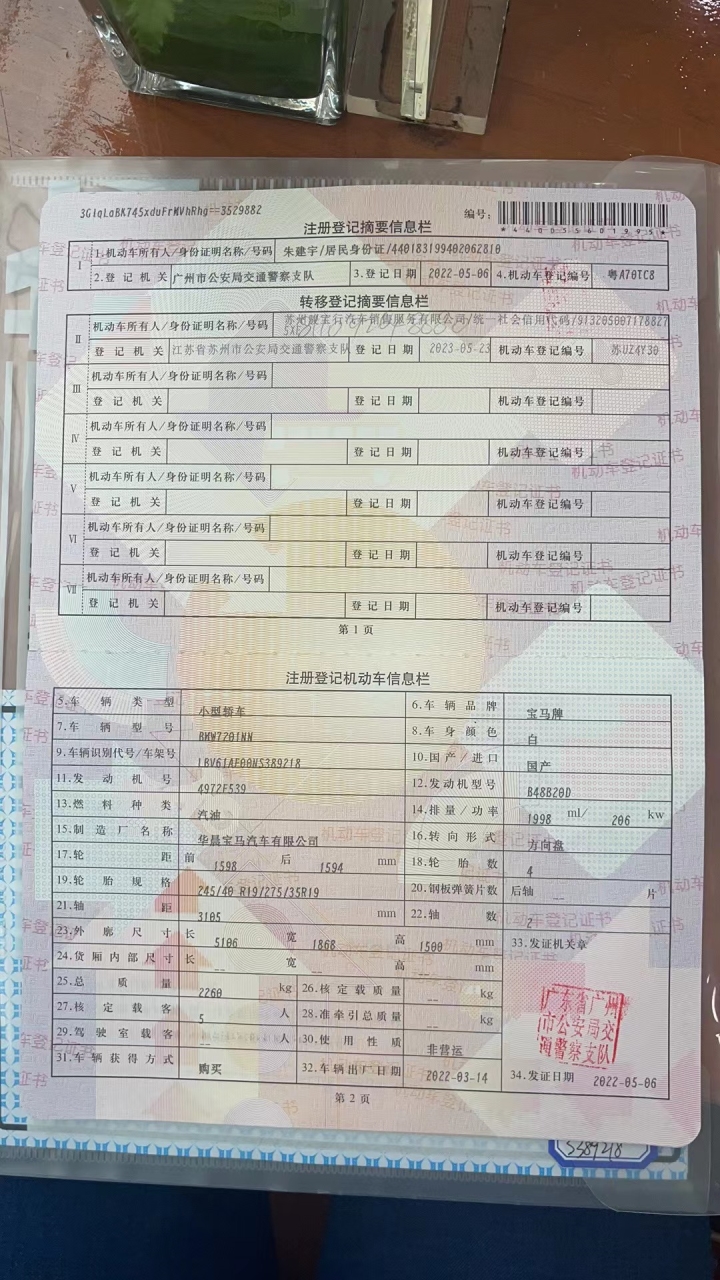 3GlqLaBK745xduFrMVhRhg==3529882
编号:
*440055601995*
注册登记摘要信息栏
Ⅰ 1.机动车所有人/身份证明名称/号码 朱建宇/居民身份证/440183199402062810
2.登记机关 广州市公安局交通警察支队 3.登记日期 2022-05-06 4.机动车登记编号 粤A70TC8
转移登记摘要信息栏
Ⅱ 机动车所有人/身份证明名称/号码 苏州靓宝行汽车销售服务有限公司/统一社会信用代码/913205007178827
登记机关 江苏省苏州市公安局交通警察支队 登记日期 2023-05-23 机动车登记编号 苏UZ4Y30
Ⅲ 机动车所有人/身份证明名称/号码
登记机关 登记日期 机动车登记编号
Ⅳ 机动车所有人/身份证明名称/号码
登记机关 登记日期 机动车登记编号
Ⅴ 机动车所有人/身份证明名称/号码
登记机关 登记日期 机动车登记编号
Ⅵ 机动车所有人/身份证明名称/号码
登记机关 登记日期 机动车登记编号
Ⅶ 机动车所有人/身份证明名称/号码
登记机关 登记日期 机动车登记编号
第1页
注册登记机动车信息栏
5.车辆类型 小型轿车 6.车辆品牌 宝马牌
7.车辆型号 BMW7201NN 8.车身颜色 白
9.车辆识别代号/车架号 LBV61AF00NS389218 10.国产/进口 国产
11.发动机号 4972F539 12.发动机型号 B48B20D
13.燃料种类 汽油 14.排量/功率 1998 ml/ 206 kw
15.制造厂名称 华晨宝马汽车有限公司 16.转向形式 方向盘
17.轮距 前 1598 后 1594 mm 18.轮胎数 4
19.轮胎规格 245/40 R19/275/35R19 20.钢板弹簧片数 后轴 -- 片
21.轴距 3105 mm 22.轴数 2
23.外廓尺寸 长 5106 宽 1868 高 1500 mm 33.发证机关章
24.货厢内部尺寸 长 -- 宽 -- 高 -- mm
25.总质量 2260 kg 26.核定载质量 -- kg
27.核定载客 5 人 28.准牵引总质量 -- kg
29.驾驶室载客 -- 人 30.使用性质 非营运
31.车辆获得方式 购买 32.车辆出厂日期 2022-03-14 34.发证日期 2022-05-06
广东省广州
市公安局交
通警察支队
第2页
S389218